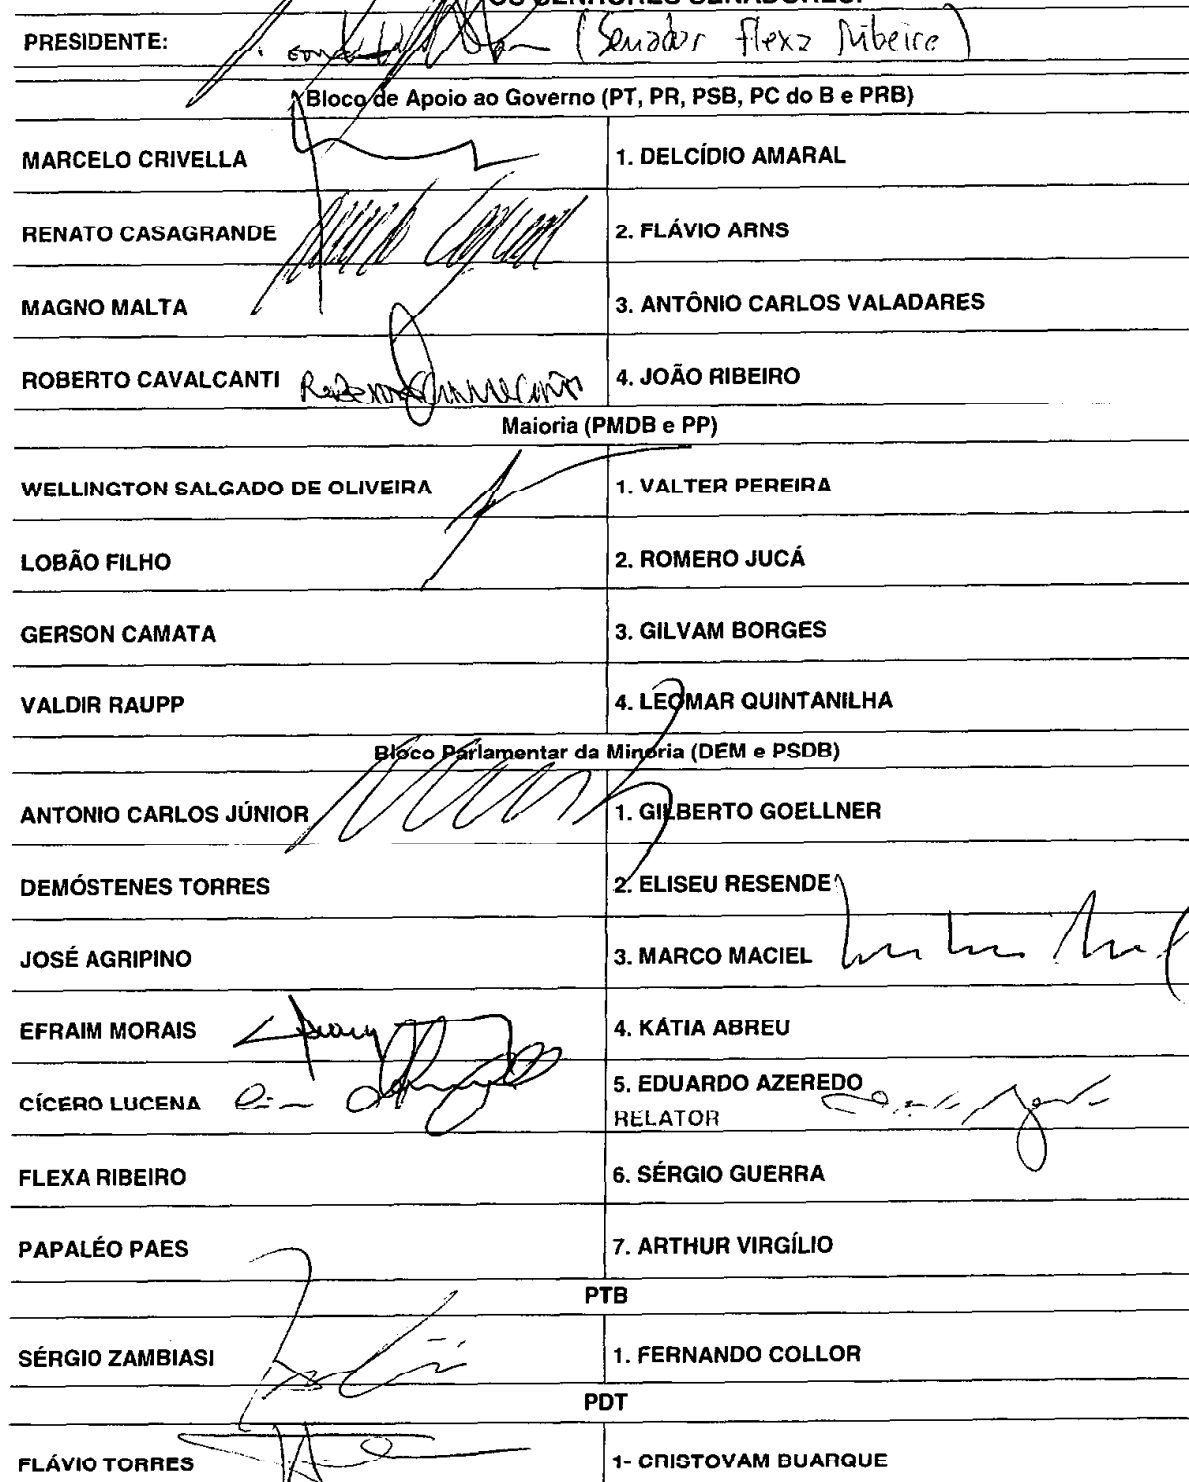 OS SENHORES SENADORES:
PRESIDENTE: (Senador Flexa Ribeiro)
Bloco de Apoio ao Governo (PT, PR, PSB, PC do B e PRB)
MARCELO CRIVELLA 1. DELCÍDIO AMARAL
RENATO CASAGRANDE 2. FLÁVIO ARNS
MAGNO MALTA 3. ANTÔNIO CARLOS VALADARES
ROBERTO CAVALCANTI 4. JOÃO RIBEIRO
Maioria (PMDB e PP)
WELLINGTON SALGADO DE OLIVEIRA 1. VALTER PEREIRA
LOBÃO FILHO 2. ROMERO JUCÁ
GERSON CAMATA 3. GILVAM BORGES
VALDIR RAUPP 4. LEOMAR QUINTANILHA
Bloco Parlamentar da Minoria (DEM e PSDB)
ANTONIO CARLOS JÚNIOR 1. GILBERTO GOELLNER
DEMÓSTENES TORRES 2. ELISEU RESENDE
JOSÉ AGRIPINO 3. MARCO MACIEL
EFRAIM MORAIS 4. KÁTIA ABREU
CÍCERO LUCENA 5. EDUARDO AZEREDO
RELATOR
FLEXA RIBEIRO 6. SÉRGIO GUERRA
PAPALÉO PAES 7. ARTHUR VIRGÍLIO
PTB
SÉRGIO ZAMBIASI 1. FERNANDO COLLOR
PDT
FLÁVIO TORRES 1- CRISTOVAM BUARQUE